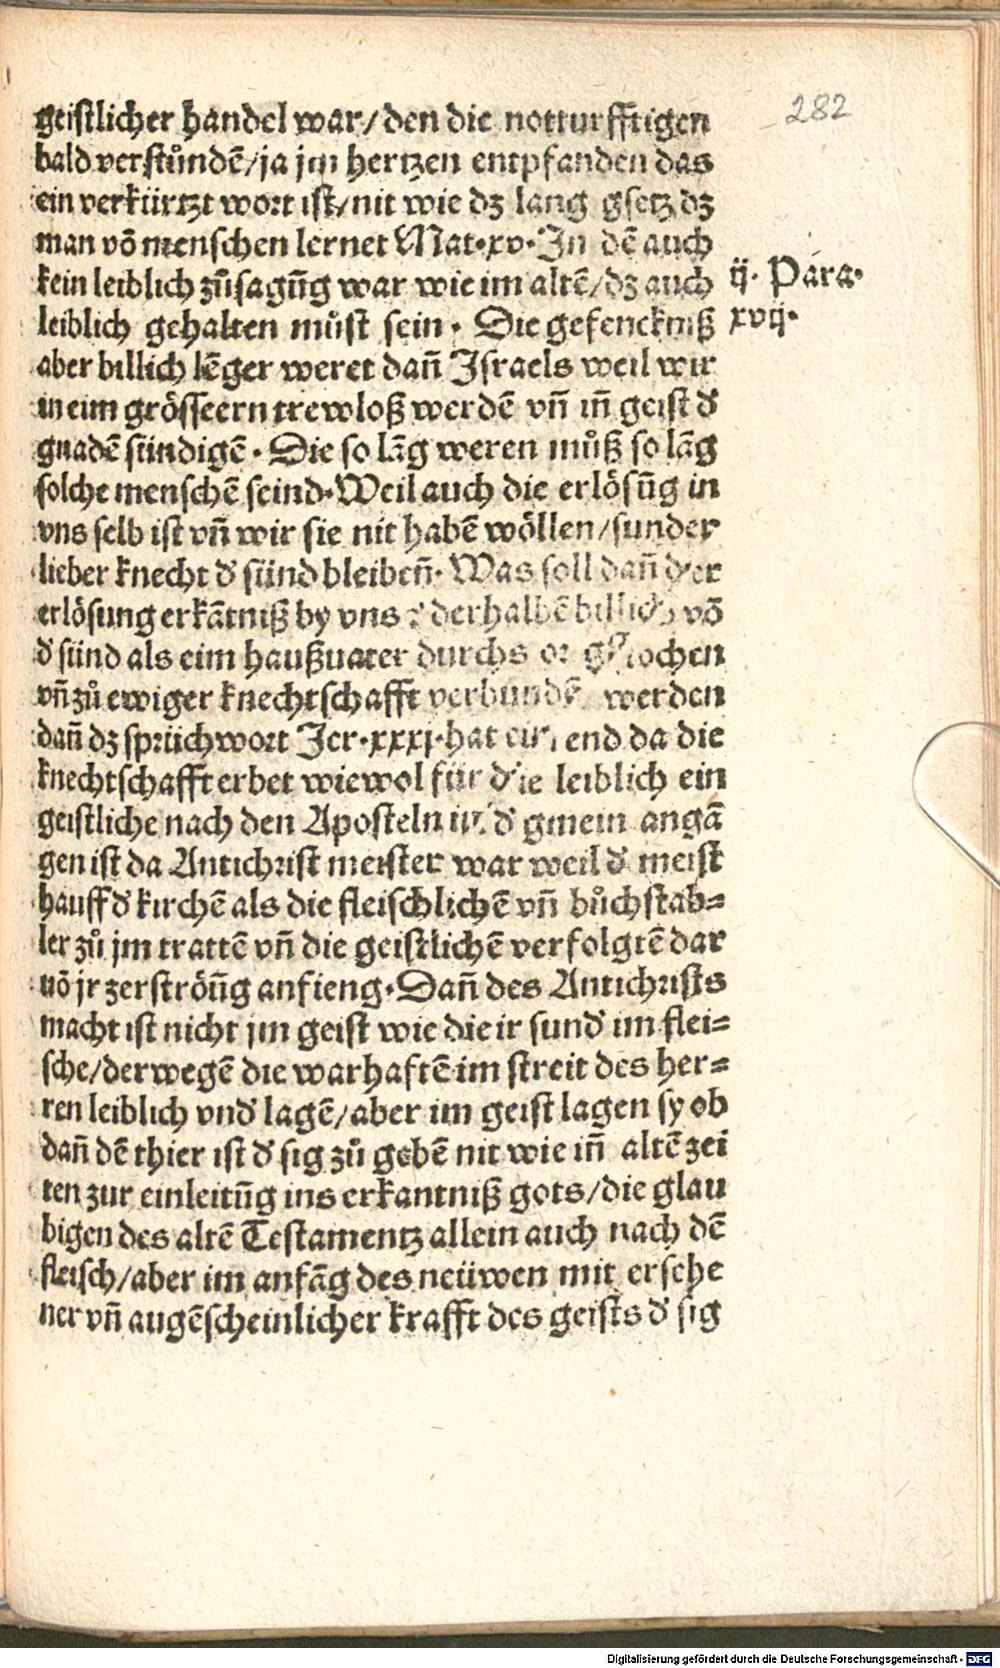 282
geistlicher handel war/den die notturfftigen
bald verstůndē/ja jm hertzen entpfanden das
ein verkürtzt wort ist/nit wie dz lang gsetz dz
man võ menschen lernet Mat.xv.In dē auch
kein leiblich zůsagũg war wie im altē/dz auch
leiblich gehalten můst sein. Die gefenckniß
ij. Para.
xvij.
aber billich lēger weret dañ Israels weil wir
in eim grösseern trewloß werdē vñ iñ geist d̕
gnadē sündigē. Die so lãg weren můß so lãg
solche menschē seind.Weil auch die erlösũg in
vns selb ist vñ wir sie nit habē wöllen/sunder
lieber knecht d̕ sünd bleibeñ. Was soll dañ d̕er
erlösung erkãtniß by vns ? derhalbē billich võ
d̕ sünd als eim haußuater durchs or gstochen
vñ zů ewiger knechtschafft verbundē werden
dañ dz sprüchwort Jer.xxxj.hat ein end da die
knechtschafft erbet wiewol für d̕ie leiblich ein
geistliche nach den Aposteln in d̕ gmein angã
gen ist da Antichrist meister war weil d̕ meist
hauff d̕ kirchē als die fleischlichē vñ bůchstab=
ler zů jm trattē vñ die geistlichē verfolgtē dar
uõ jr zerströũg anfieng.Dañ des Antichrists
macht ist nicht jm geist wie die ir sund̕ im flei=
sche/derwegē die warhaftē im streit des her=
ren leiblich vnd̕ lagē/aber im geist lagen sy ob
dañ dē thier ist d̕ sig zů gebē nit wie iñ altē zei
ten zur einleitũg ins erkantniß gots/die glau
bigen des altē Testamentz allein auch nach dē
fleisch/aber im anfãg des neüwen mit ersche
ner vñ augēscheinlicher krafft des geists d̕ sig
Digitalisierung gefördert durch die Deutsche Forschungsgemeinschaft - DFG